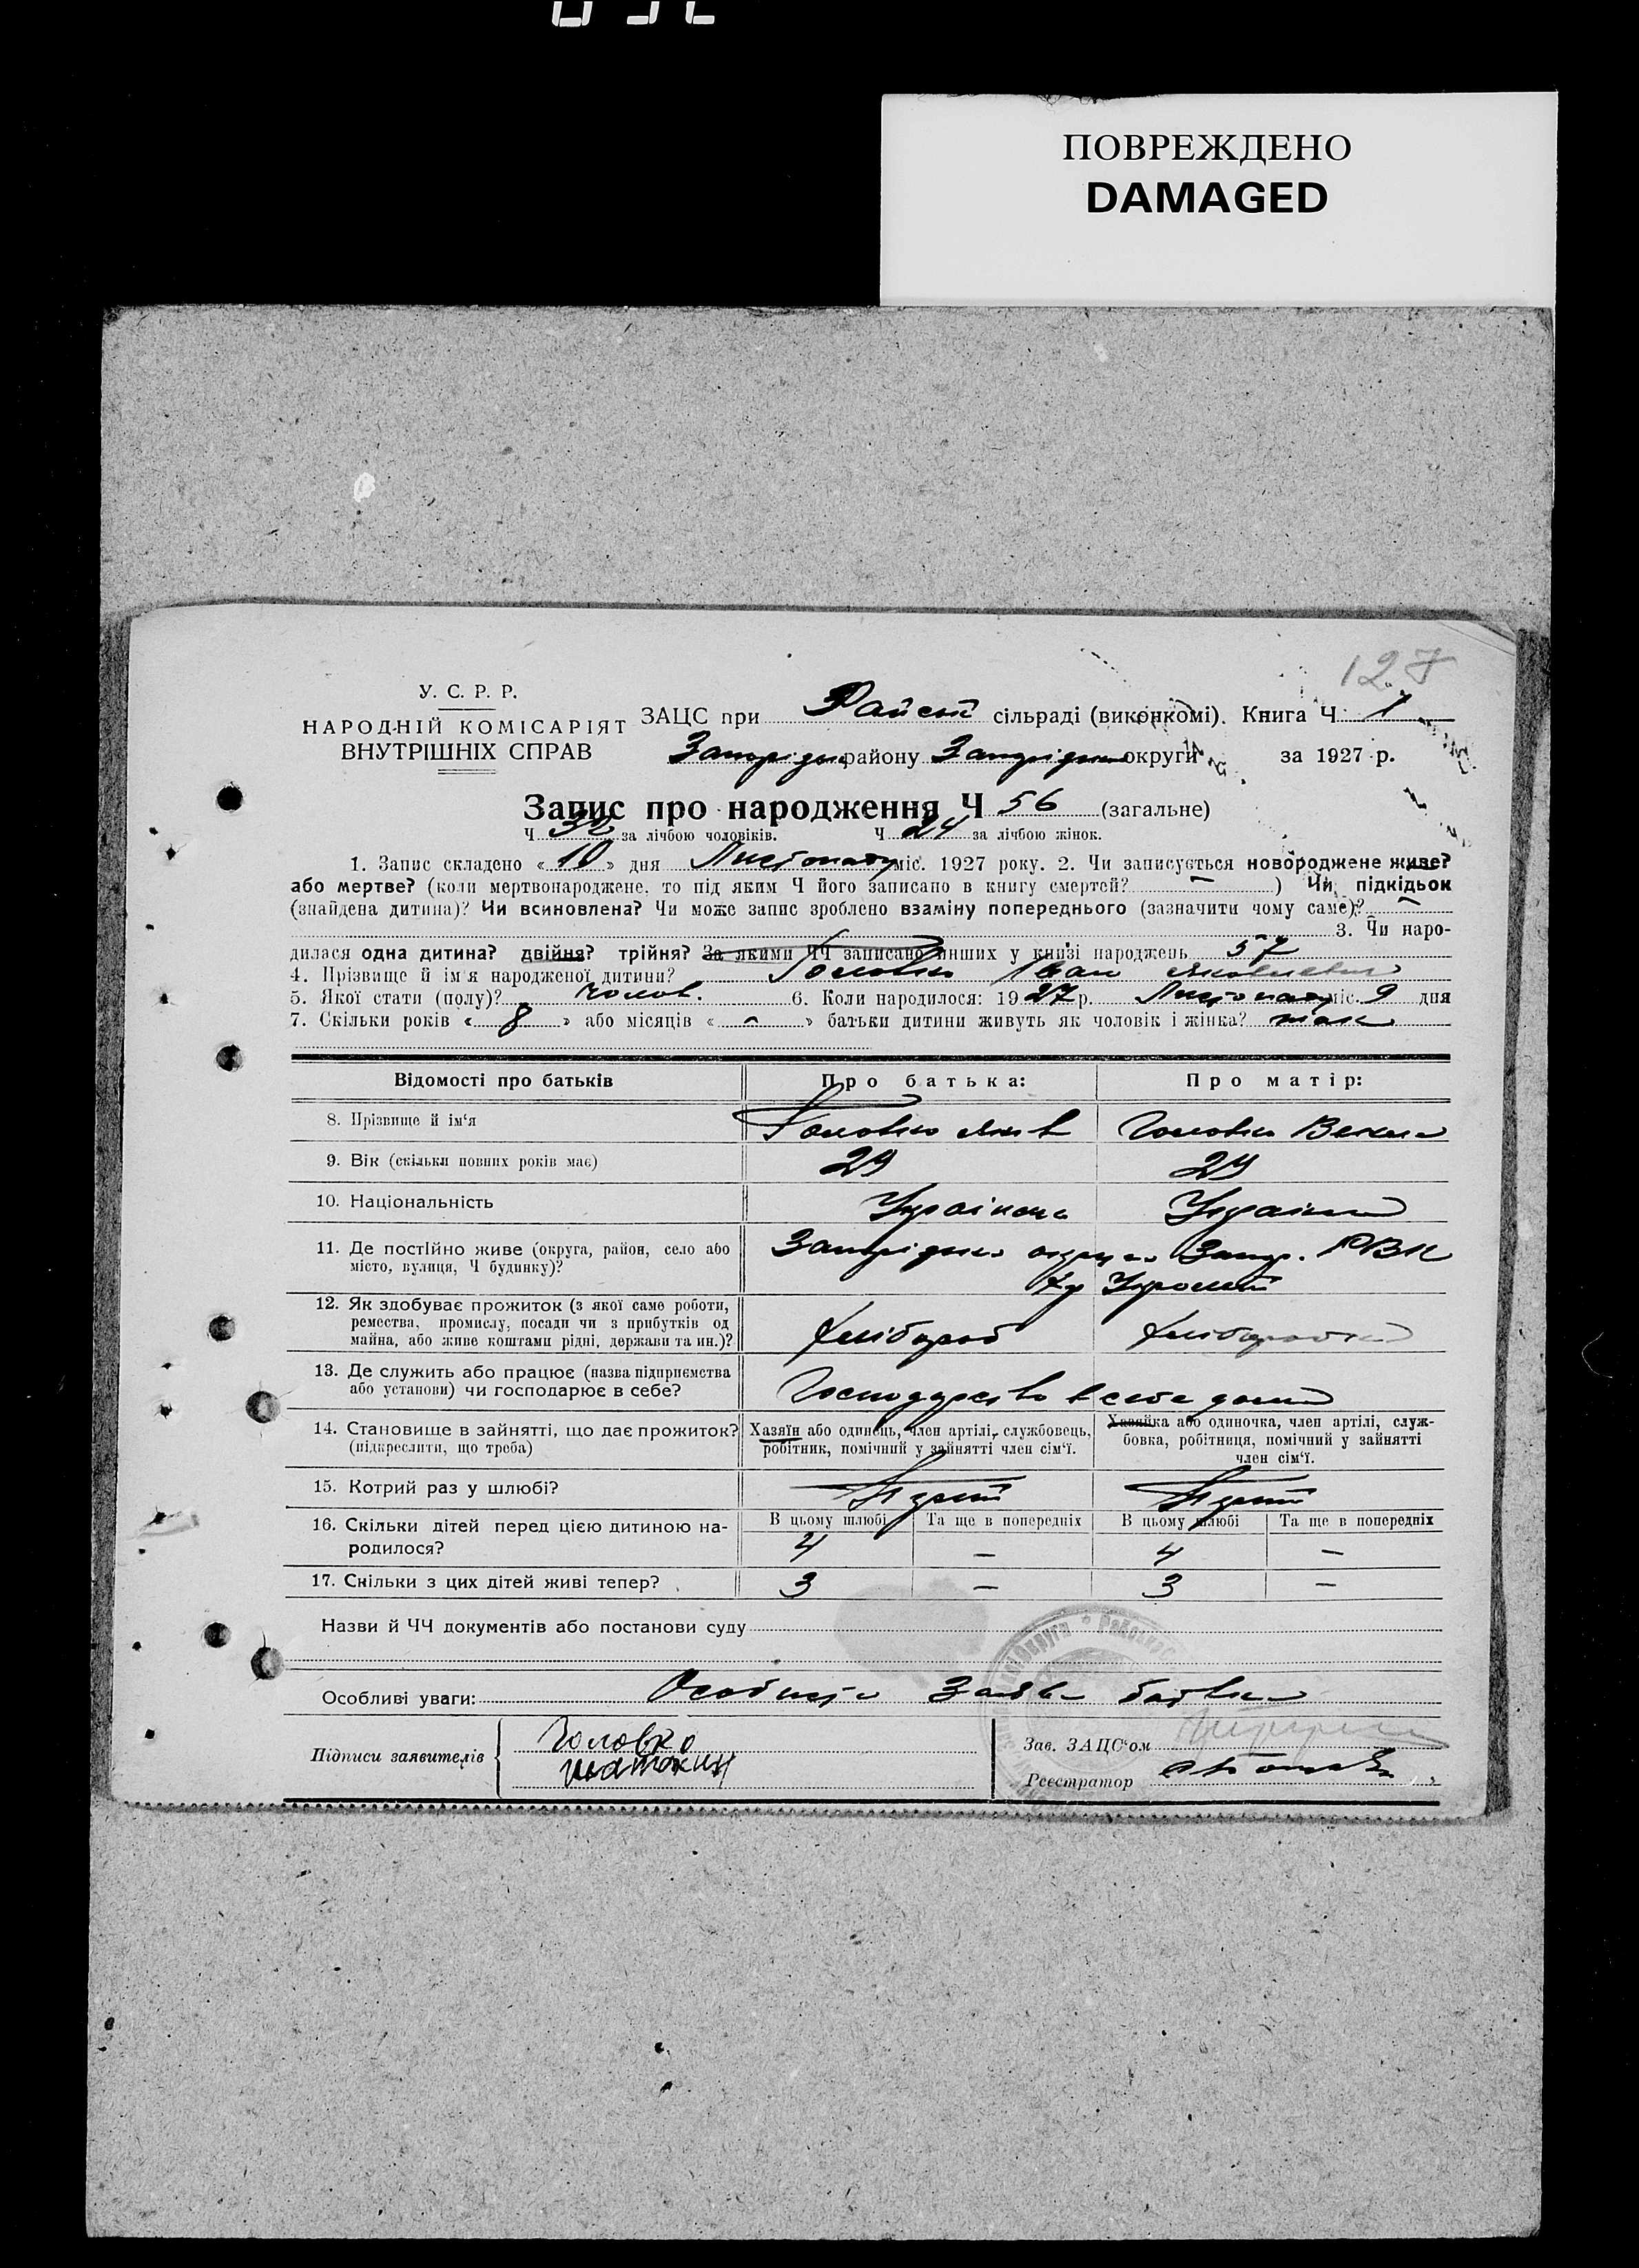 ПОВРЕЖДЕНО
DAMAGED
127
У. С. Р. Р.
НАРОДНІЙ КОМІСАРІЯТ
ВНУТРІШНІХ СПРАВ
ЗАЦС при Райській сільраді (виконкомі). Книга Ч 1
району округи за 1927 р.
Запис про народження Ч 56 (загальне)
Ч 32 за лічбою чоловіків. Ч 24 за лічбою жінок.
1. Запис складено « 10 » дня Листопаду міс. 1927 року. 2. Чи записується новороджене живе?
або мертве? (коли мертвонароджене, то під яким Ч його записано в книгу смертей? — ) Чи підкідьок
(знайдена дитина)? Чи всиновлена? Чи може запис зроблено взаміну попереднього (зазначити чому саме)? —
3. Чи наро-
дилася одна дитина? двійня? трійня? За якими ЧЧ записано инших у книзі народжень 57
4. Прізвище й ім'я народженої дитини? Головко Іван Яковлевич
5. Якої стати (полу)? чолов. 6. Коли народилося: 1927 р. Листопаду міс. 9 дня
7. Скільки років « 8 » або місяців « - » батьки дитини живуть як чоловік і жінка? так
Відомості про батьків Про батька: Про матір:
8. Прізвище й ім'я Головко Яків Головко Векла
9. Вік (скільки повних років має) 29 29
10. Національність Українець Українка
11. Де постійно живе (округа, район, село або
місто, вулиця, Ч будинку)?
округа Запор. РВК
12. Як здобуває прожиток (з якої саме роботи,
ремества, промислу, посади чи з прибутків од
майна, або живе коштами рідні, держави та ин.)?
хлібороб хлібо
13. Де служить або працює (назва підприємства
або установи) чи господарює в себе?
Господарство в себе дома
14. Становище в зайнятті, що дає прожиток?
(підкреслити, що треба)
Хазяїн або одинець, член артілі, службовець,
робітник, помічний у зайнятті член сім'ї.
Хазяйка або одиночка, член артілі, служ-
бовка, робітниця, помічний у зайнятті
член сім'ї.
15. Котрий раз у шлюбі? Перший Перший
16. Скільки дітей перед цією дитиною на-
родилося?
В цьому шлюбі Та ще в попередніх В цьому шлюбі Та ще в попередніх
4 — 4 —
17. Скільки з цих дітей живі тепер? 3 — 3 —
Назви й ЧЧ документів або постанови суду
Особливі уваги: Особиста Заява батька
Підписи заявителів
Головко
Зав. ЗАЦС'ом
Реєстратор